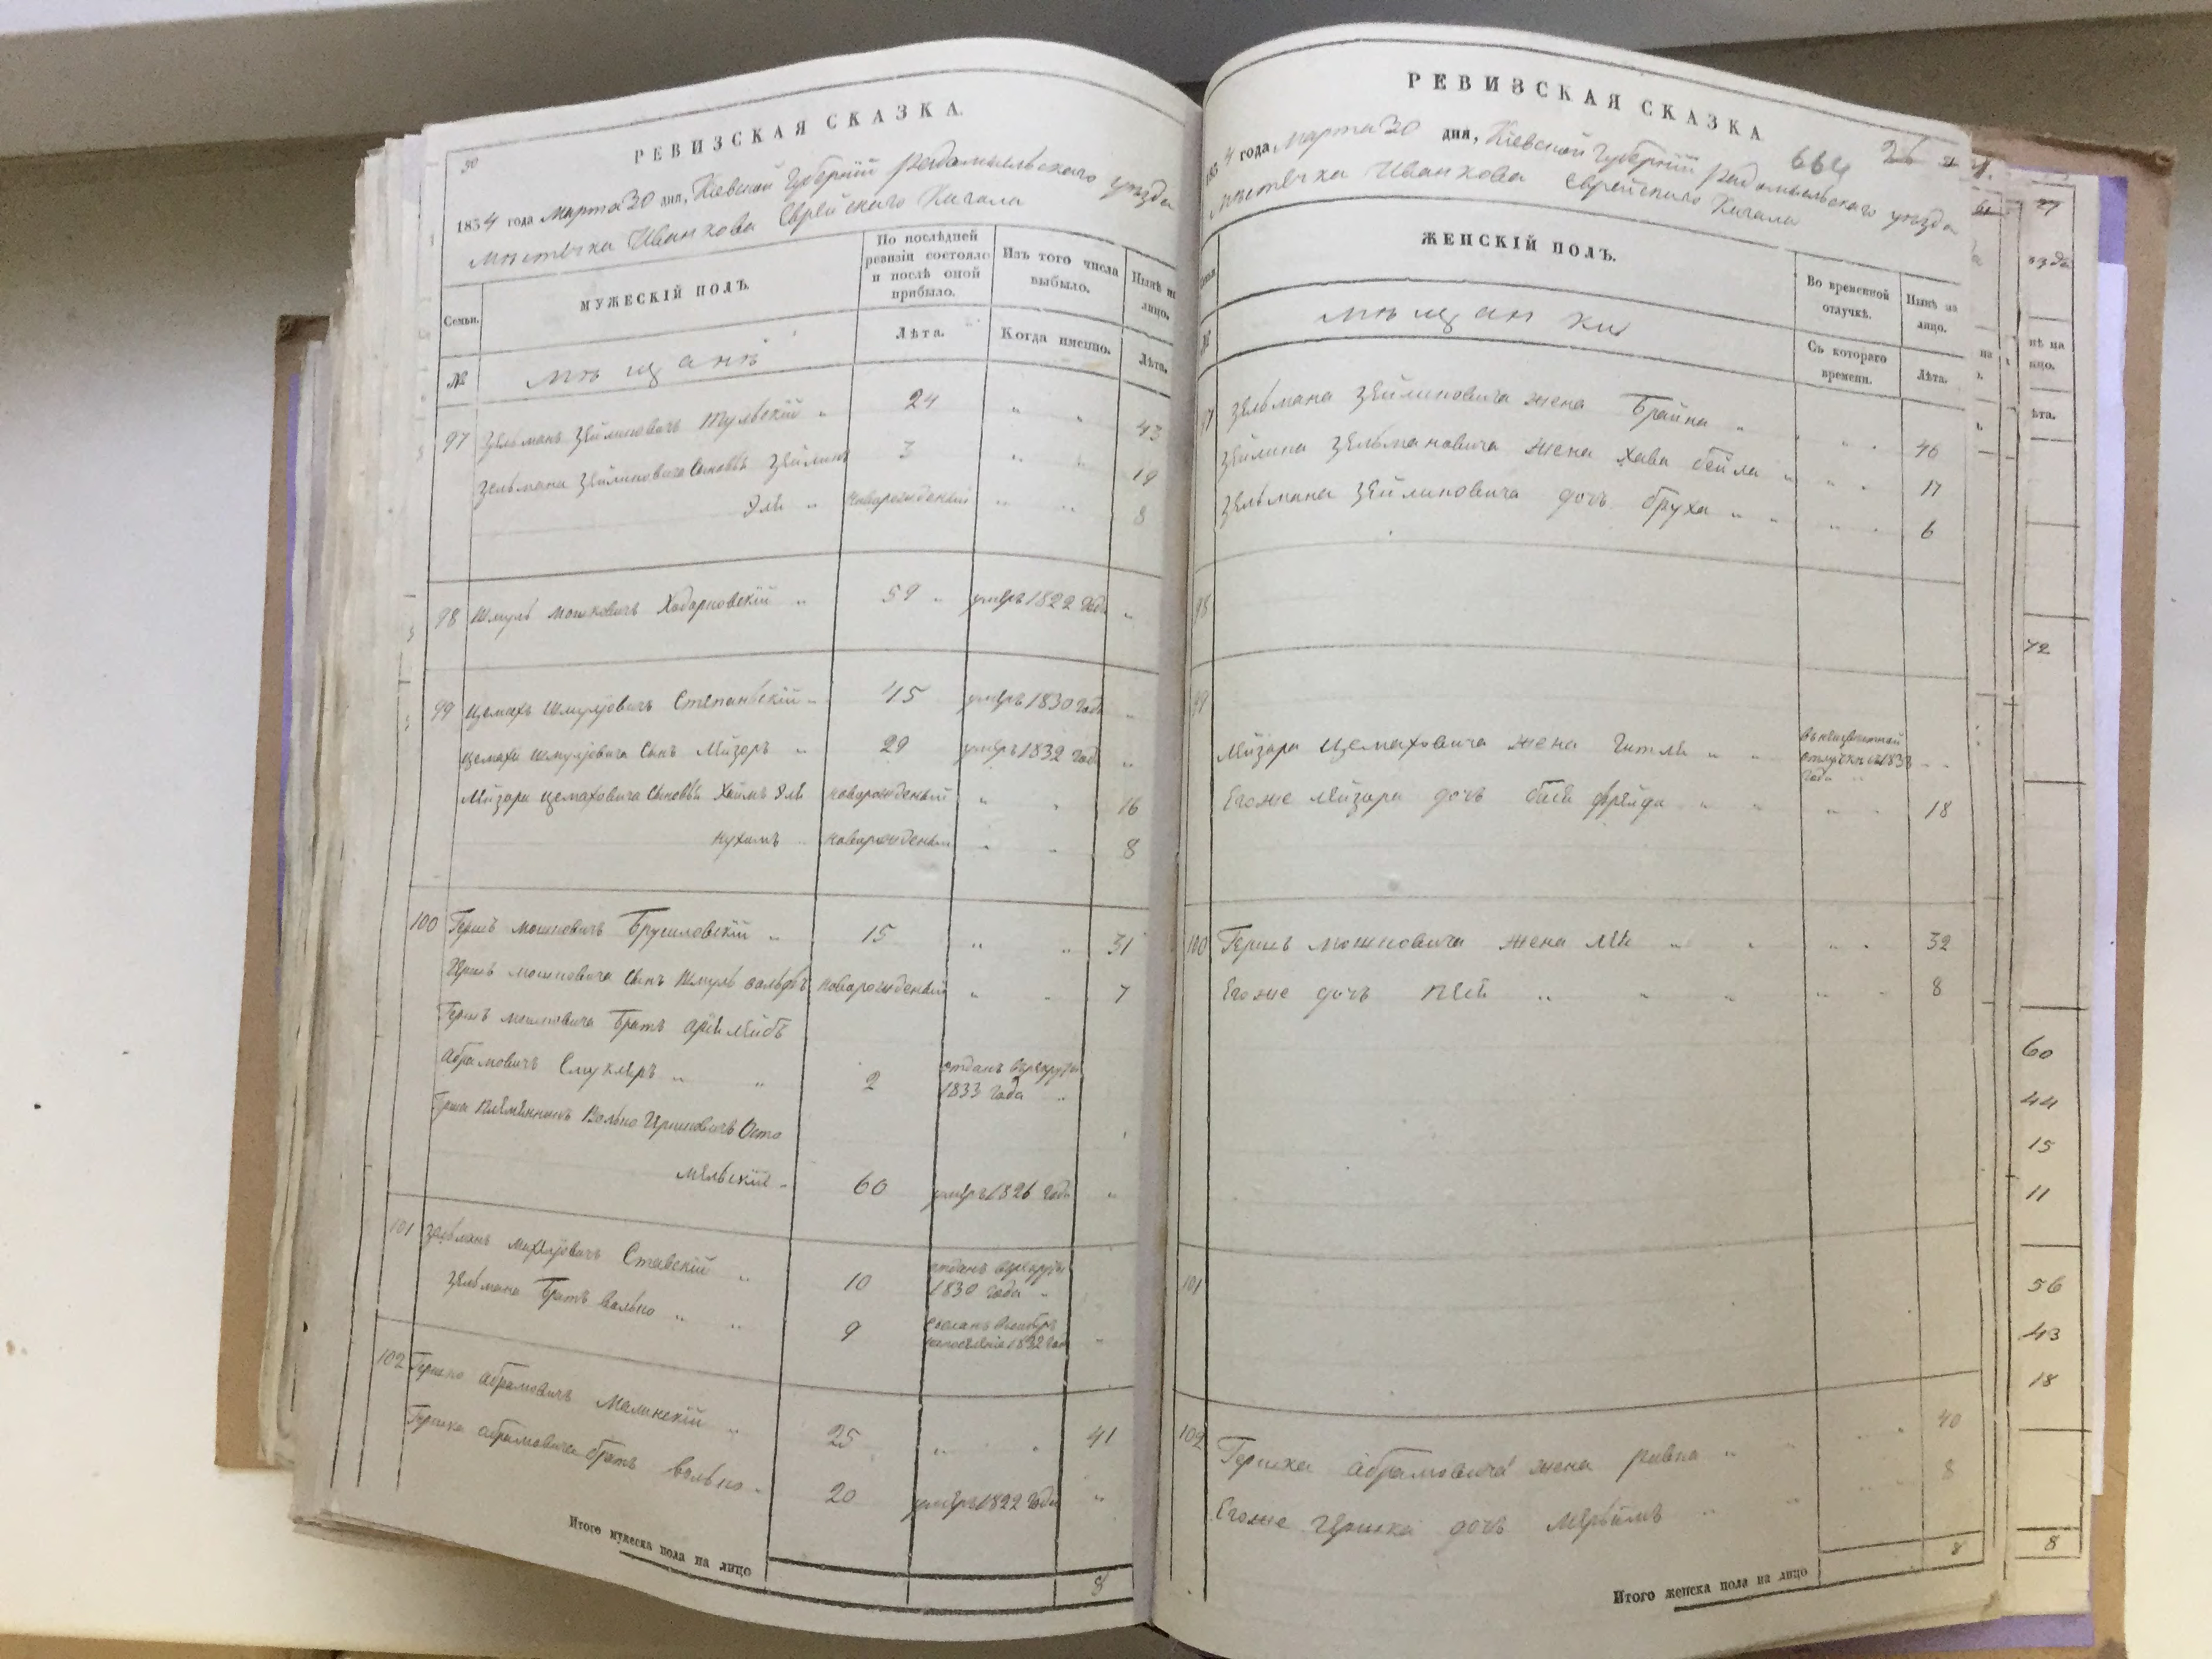 50
РЕВИЗСКАЯ СКАЗКА.
1834 года Марта 30 дня, Кіевской Губерніи Радомыльского уѣзда
мѣстечка Иванкова Еврейского Кагала
Семьи.
МУЖЕСКІЙ ПОЛЪ.
По послѣдней ревизіи состояло и послѣ оной прибыло.
Изъ того числа выбыло.
Нынѣ на лицо.
№
мѣщанѣ
Лѣта.
Когда именно.
Лѣта.
97 Зельманъ Зейлиновичъ Тульскій 24 " " 43
Зельмана Зейлиновича сыновья Зейлинъ 3 " " 19
Эли новорожденый " " 8
98 Шмуль Мошковичъ Ходарковскій 59 умеръ 1822 года "
99 Цемахъ Шмулёвичъ Степанскій 45 умеръ 1830 года "
Цемаха Шмулёвича сынъ Лейзоръ 29 умеръ 1832 года "
Лейзора Цемаховича сыновья Хаимъ Эли новорожденый " " 16
Нухимъ новорожденый " " 8
100 Гершъ Мошковичъ Брусиловскій 15 " " 31
Герша Мошковича сынъ Шмуль Вольфъ новорожденый " " 7
Гершъ Мошковича братъ Арія Лейбъ
Абрамовичъ Смуклеръ 2 отданъ в рекруты 1833 года "
Герша племенникъ Волько Ицковичъ Осто
мельскій 60 умеръ 1826 года "
101 Зельманъ Ставскій 10 отданъ в рекруты 1830 года "
Зельмана братъ Волько 9 сосланъ в Сибирь на поселеніе 1832 года "
102 Гершко Абрамовичъ Малинскій 25 " " 41
Гершка Абрамовича братъ Волько 20 умеръ 1822 года "
Итого мужеска пола на лицо
8
РЕВИЗСКАЯ СКАЗКА
664
1834 года Марта 30 дня, Кіевской Губерніи Радомыльского уѣзда
мѣстечка Иванкова Еврейского Кагала
ЖЕНСКІЙ ПОЛЪ.
Во временной отлучкѣ.
Нынѣ на лицо.
№
мѣщанки
Съ котораго времени.
Лѣта.
97 Зельмана Зейлиновича жена Брайна " " 46
Зейлина Зельмановича жена Хава Бейла " " 17
Зельмана Зейлиновича дочь Бруха " " 6
98
99
Лейзора Цемаховича жена Гитля в неизвестной отлучки с 1833 года "
Егоже Лейзора дочь Бася Фрейда " " 18
100 Гершъ Мошковича жена Лея " " 32
Егоже дочь Песя " " 8
101
102 Гершка Абрамовича жена Ривка " " 40
Егоже Гершка дочь Мерьямъ " " 8
Итого женска пола на лицо
8
72
60
44
15
11
56
43
18
8